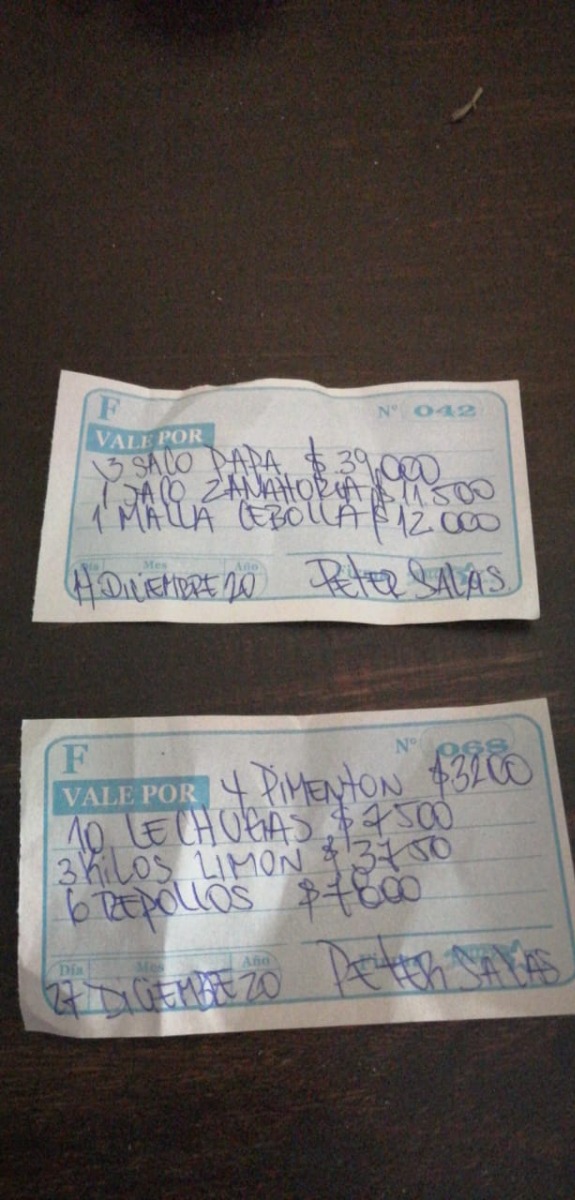 F Nº 042
VALE POR
3 SACO PAPA $39,000
1 SACO ZANAHORIA $11.500
1 MALLA CEBOLLA $12.000
Día Mes Año
DICIEMBRE 20 PETER SALAS
F Nº 068
VALE POR 4 PIMENTON $3200
10 LECHUGAS $7500
3 KILOS LIMON $3750
6 REPOLLOS
Día Mes Año
27 DICIEMBRE 20 PETER SALAS